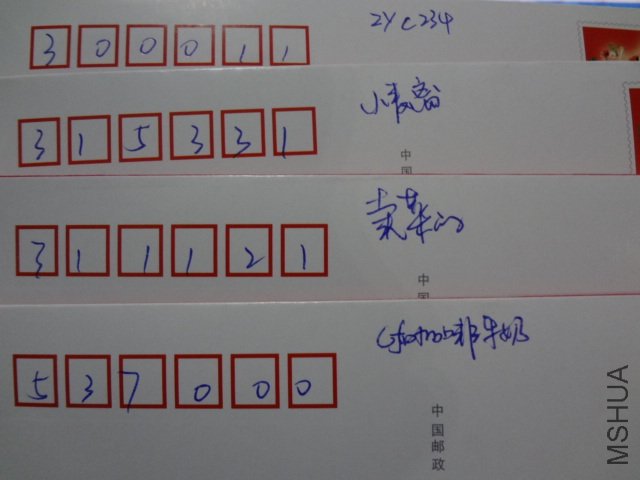 300011
zyc234
315331
中国
311121
中国
537000
牛奶
中国邮政
MSHUA